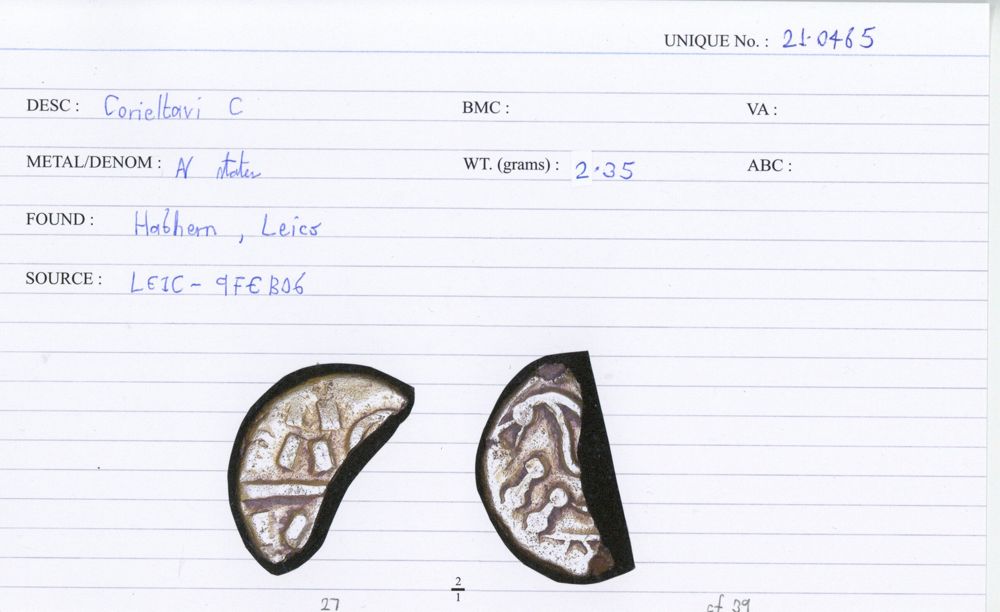 UNIQUE No. : 21·0465
DESC : Corieltavi C BMC : VA :
METAL/DENOM : N stater WT. (grams) : 2·35 ABC :
FOUND : Hathern, Leics
SOURCE : LEIC - 9FEB06
2
1
27 cf 39